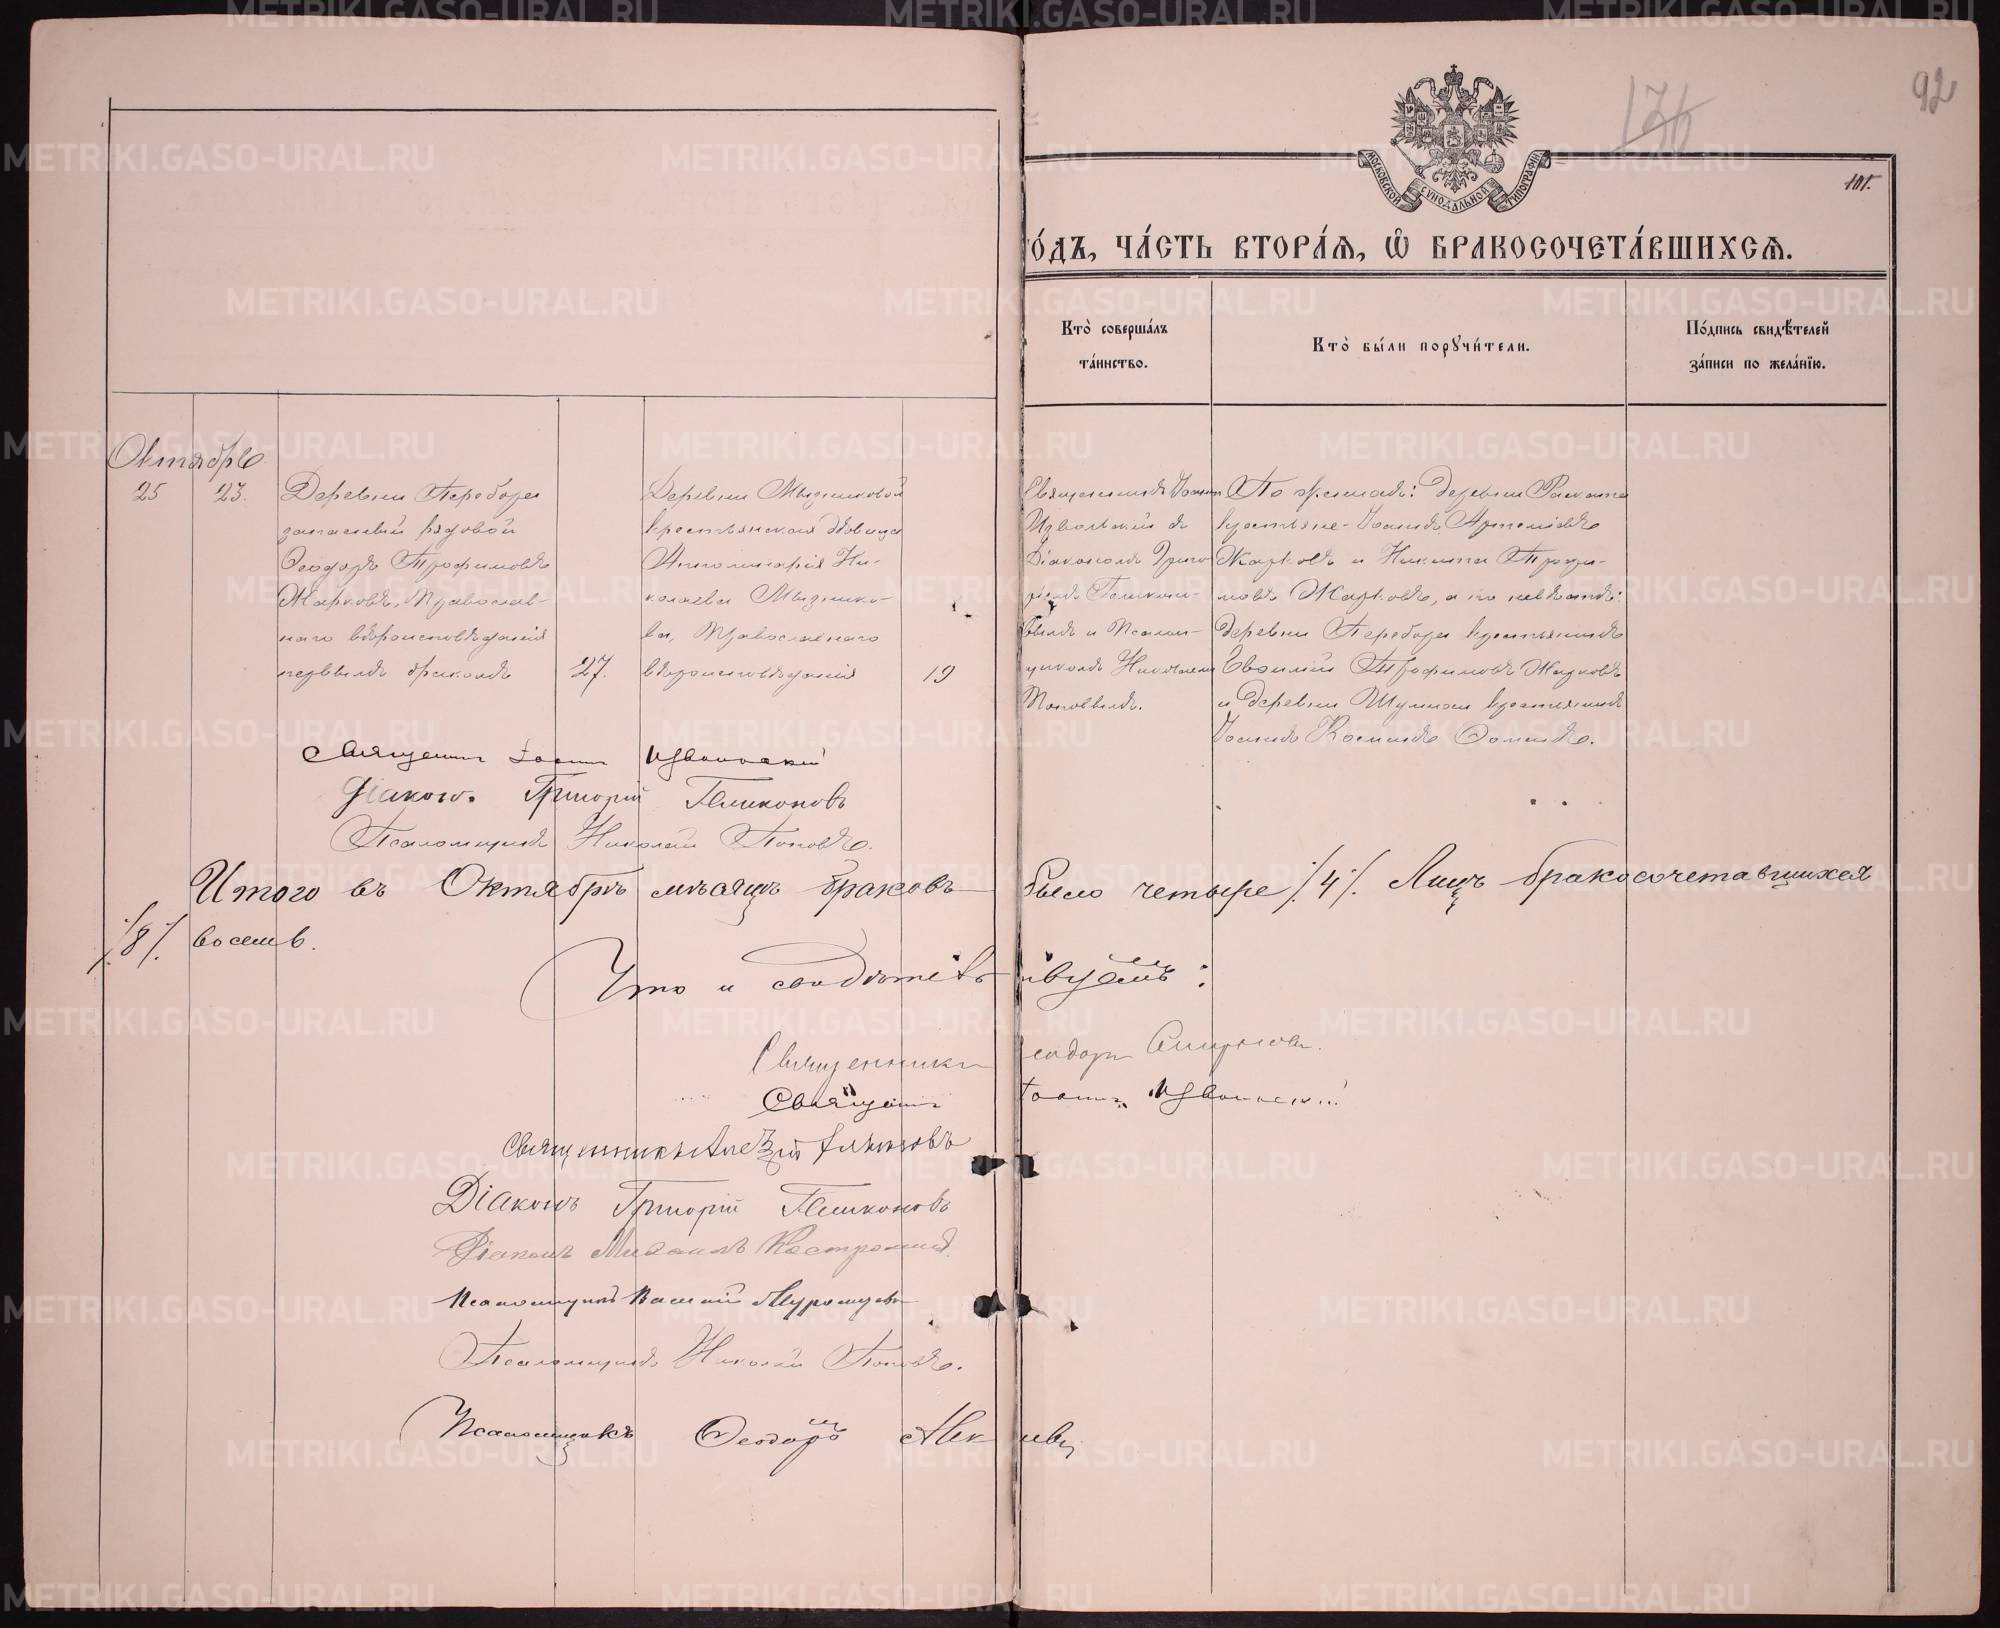 92
176
101.
МОСКОВСКОЙ СУНОДАЛЬНОЙ ТИПОГРАФИИ
го́дъ, ча́сть втора́ѧ, ѡ҆ бракосочета́вшихсѧ.
Кто̀ соверша́лъ
та́инство.
Кто̀ бы́ли порꙋчи́тели.
По́дпись свидѣ́телей
за́писи по жела́нїю.
Октябрь
25
23.
Деревни Переборы
запасный рядовой
Ѳеодоръ Трофимовъ
Жарковъ, Православ-
наго вѣроисповѣданія
первымъ бракомъ
27.
крестьянская дѣвица
Апполинарія Ни-
колаева
ва, Православнаго
вѣроисповѣданія
19
Священникъ Іоаннъ
Изволскій съ
Діакономъ Григо-
ріемъ
вымъ и Псалом-
щикомъ Николаемъ
Поповымъ.
По женихѣ: Деревни
крестьяне Іоаннъ Артемьевъ
Жарковъ и Никита Трофи-
мовъ Жарковъ, а по невѣстѣ:
Деревни Переборы крестьянинъ
Евѳимій Трофимовъ Жарковъ
и Деревни крестьянинъ
Іоаннъ Космовъ Ѳоминъ.
Священник Іоанн
Діаконъ Григорій
Псаломщикъ Николай Поповъ.
Итого въ Октябрѣ мѣсяцѣ браковъ было четыре /4/. Лицъ бракосочетавшихся
/8/. восемь.
Что и свидѣтельствуемъ:
Священникъ Ѳеодоръ Смирновъ.
Священ. Іоаннъ
Священникъ Алексій
Діаконъ Григорій
Діаконъ Михаилъ Костроминъ.
Псаломщикъ Василій
Псаломщикъ Николай Поповъ.
Псаломщикъ Ѳеодоръ
METRIKI.GASO-URAL.RU